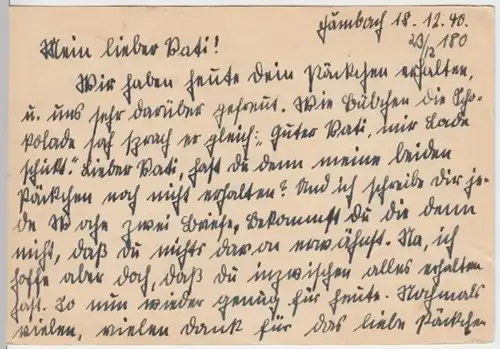 Hambach 18.12.40.
23/12 180
Mein lieber Vati!
Wir haben heute dein Päckchen erhalten,
u. uns sehr darüber gefreut. Wie Bübchen die Scho-
kolade sah sprach er gleich: „Guter Vati, mir Lade
schickt." Lieber Vati, hast du denn meine beiden
Päckchen noch nicht erhalten? Und ich schreibe dir je-
de Woche zwei Briefe, bekommst du die denn
nicht, daß du nichts daran erwähnst. Na, ich
hoffe aber doch, daß du inzwischen alles erhalten
hast. So nun wieder genug für heute. Nochmals
vielen, vielen Dank für das liebe Päckchen